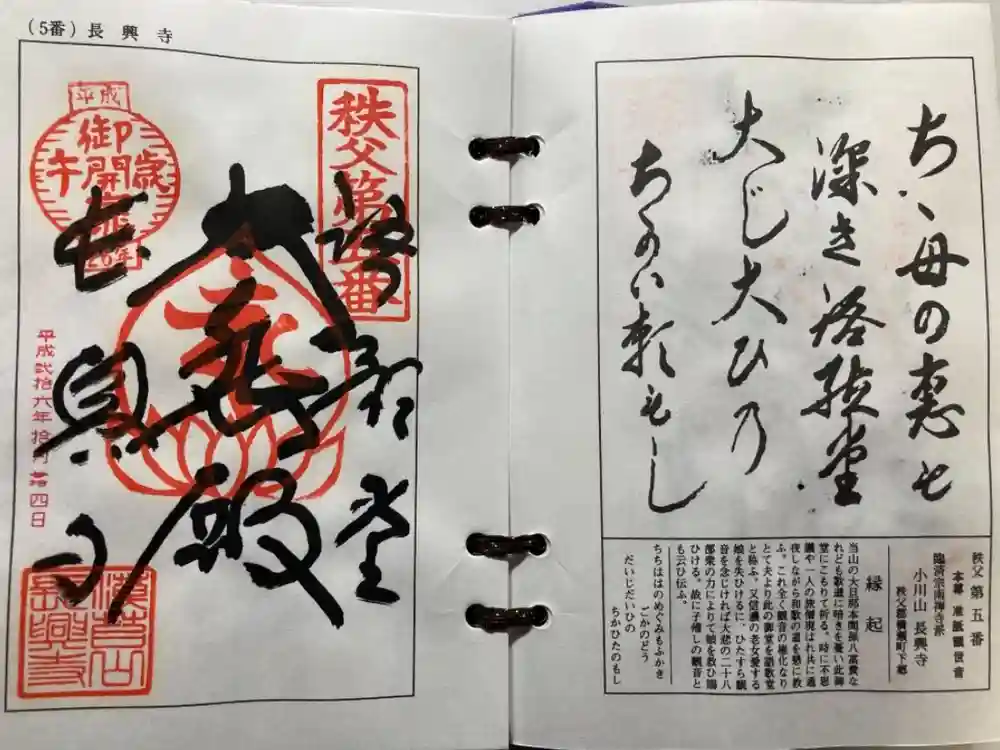 (5番) 長興寺
秩父第五番
語歌堂
大悲殿
長興寺
平成
御開帳
午歳
26年
長興寺
ちゝ母の恵も
深き語歌堂
大じ大ひの
ちかひ頼もし
秩父 第五番
本尊 准胝観世音
臨済宗南禅寺派
小川山 長興寺
秩父郡横瀬町下郷
縁起
当山の大旦那本間孫八富貴な
れども歌道に暗きを憂い此御
堂にこもりて祈る。時に不思
議や一人の旅僧現はれ共に通
夜しながら和歌の道を懇に教
ふ。これ全く観音の権化なり
とて夫より此の御堂を語歌堂
と称ふ。又信濃の老女愛する
娘を失ひけるに、ひたすら観
音を念じければ大悲の二十八
部衆の力によりて娘を救ひ賜
ひける。故に子催しの観音と
も云ひ伝ふ。
ちちははのめぐみもふかき
ごかのどう
だいじだいひの
ちかひたのもし